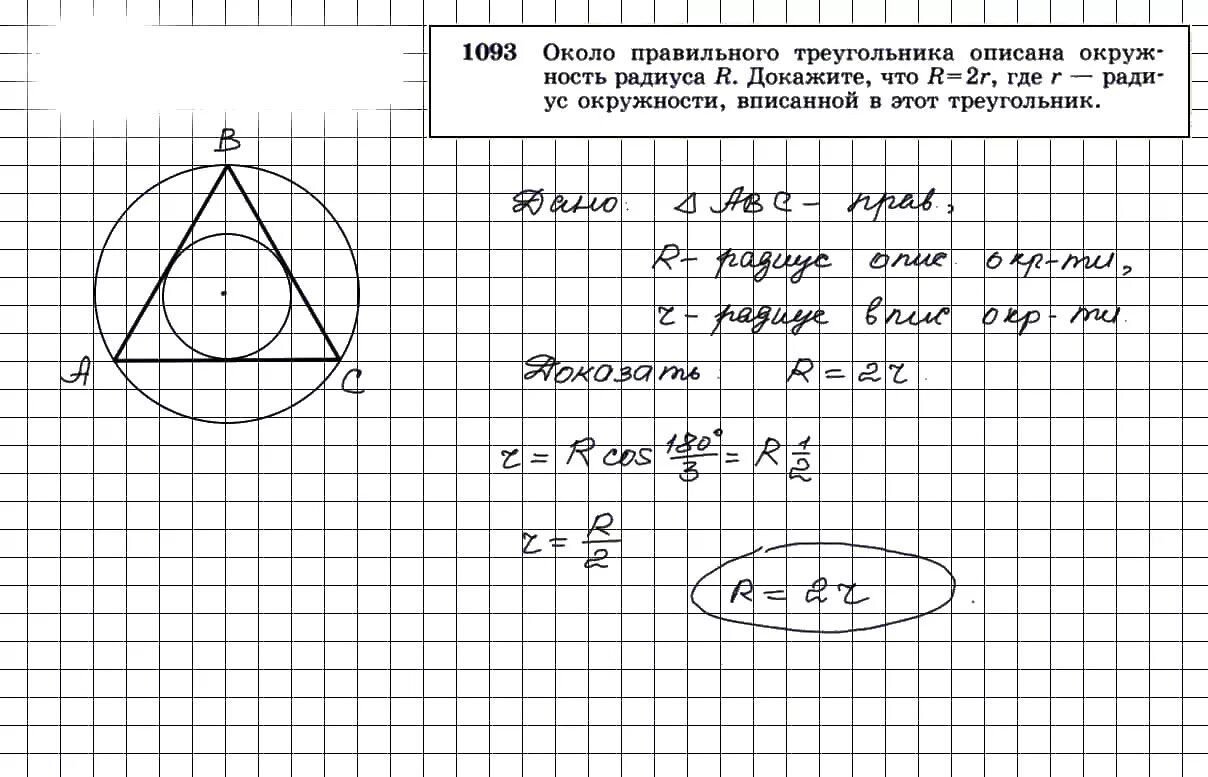 1093 Около правильного треугольника описана окруж-
ность радиуса R. Докажите, что R=2r, где r — ради-
ус окружности, вписанной в этот треугольник.
B
A
C
Дано: Δ ABC – прав.,
R – радиус опис. окр-ти,
r – радиус впис окр-ти.
Доказать: R = 2r.
r = R cos 180°/3 = R 1/2
r = R/2
R = 2r.